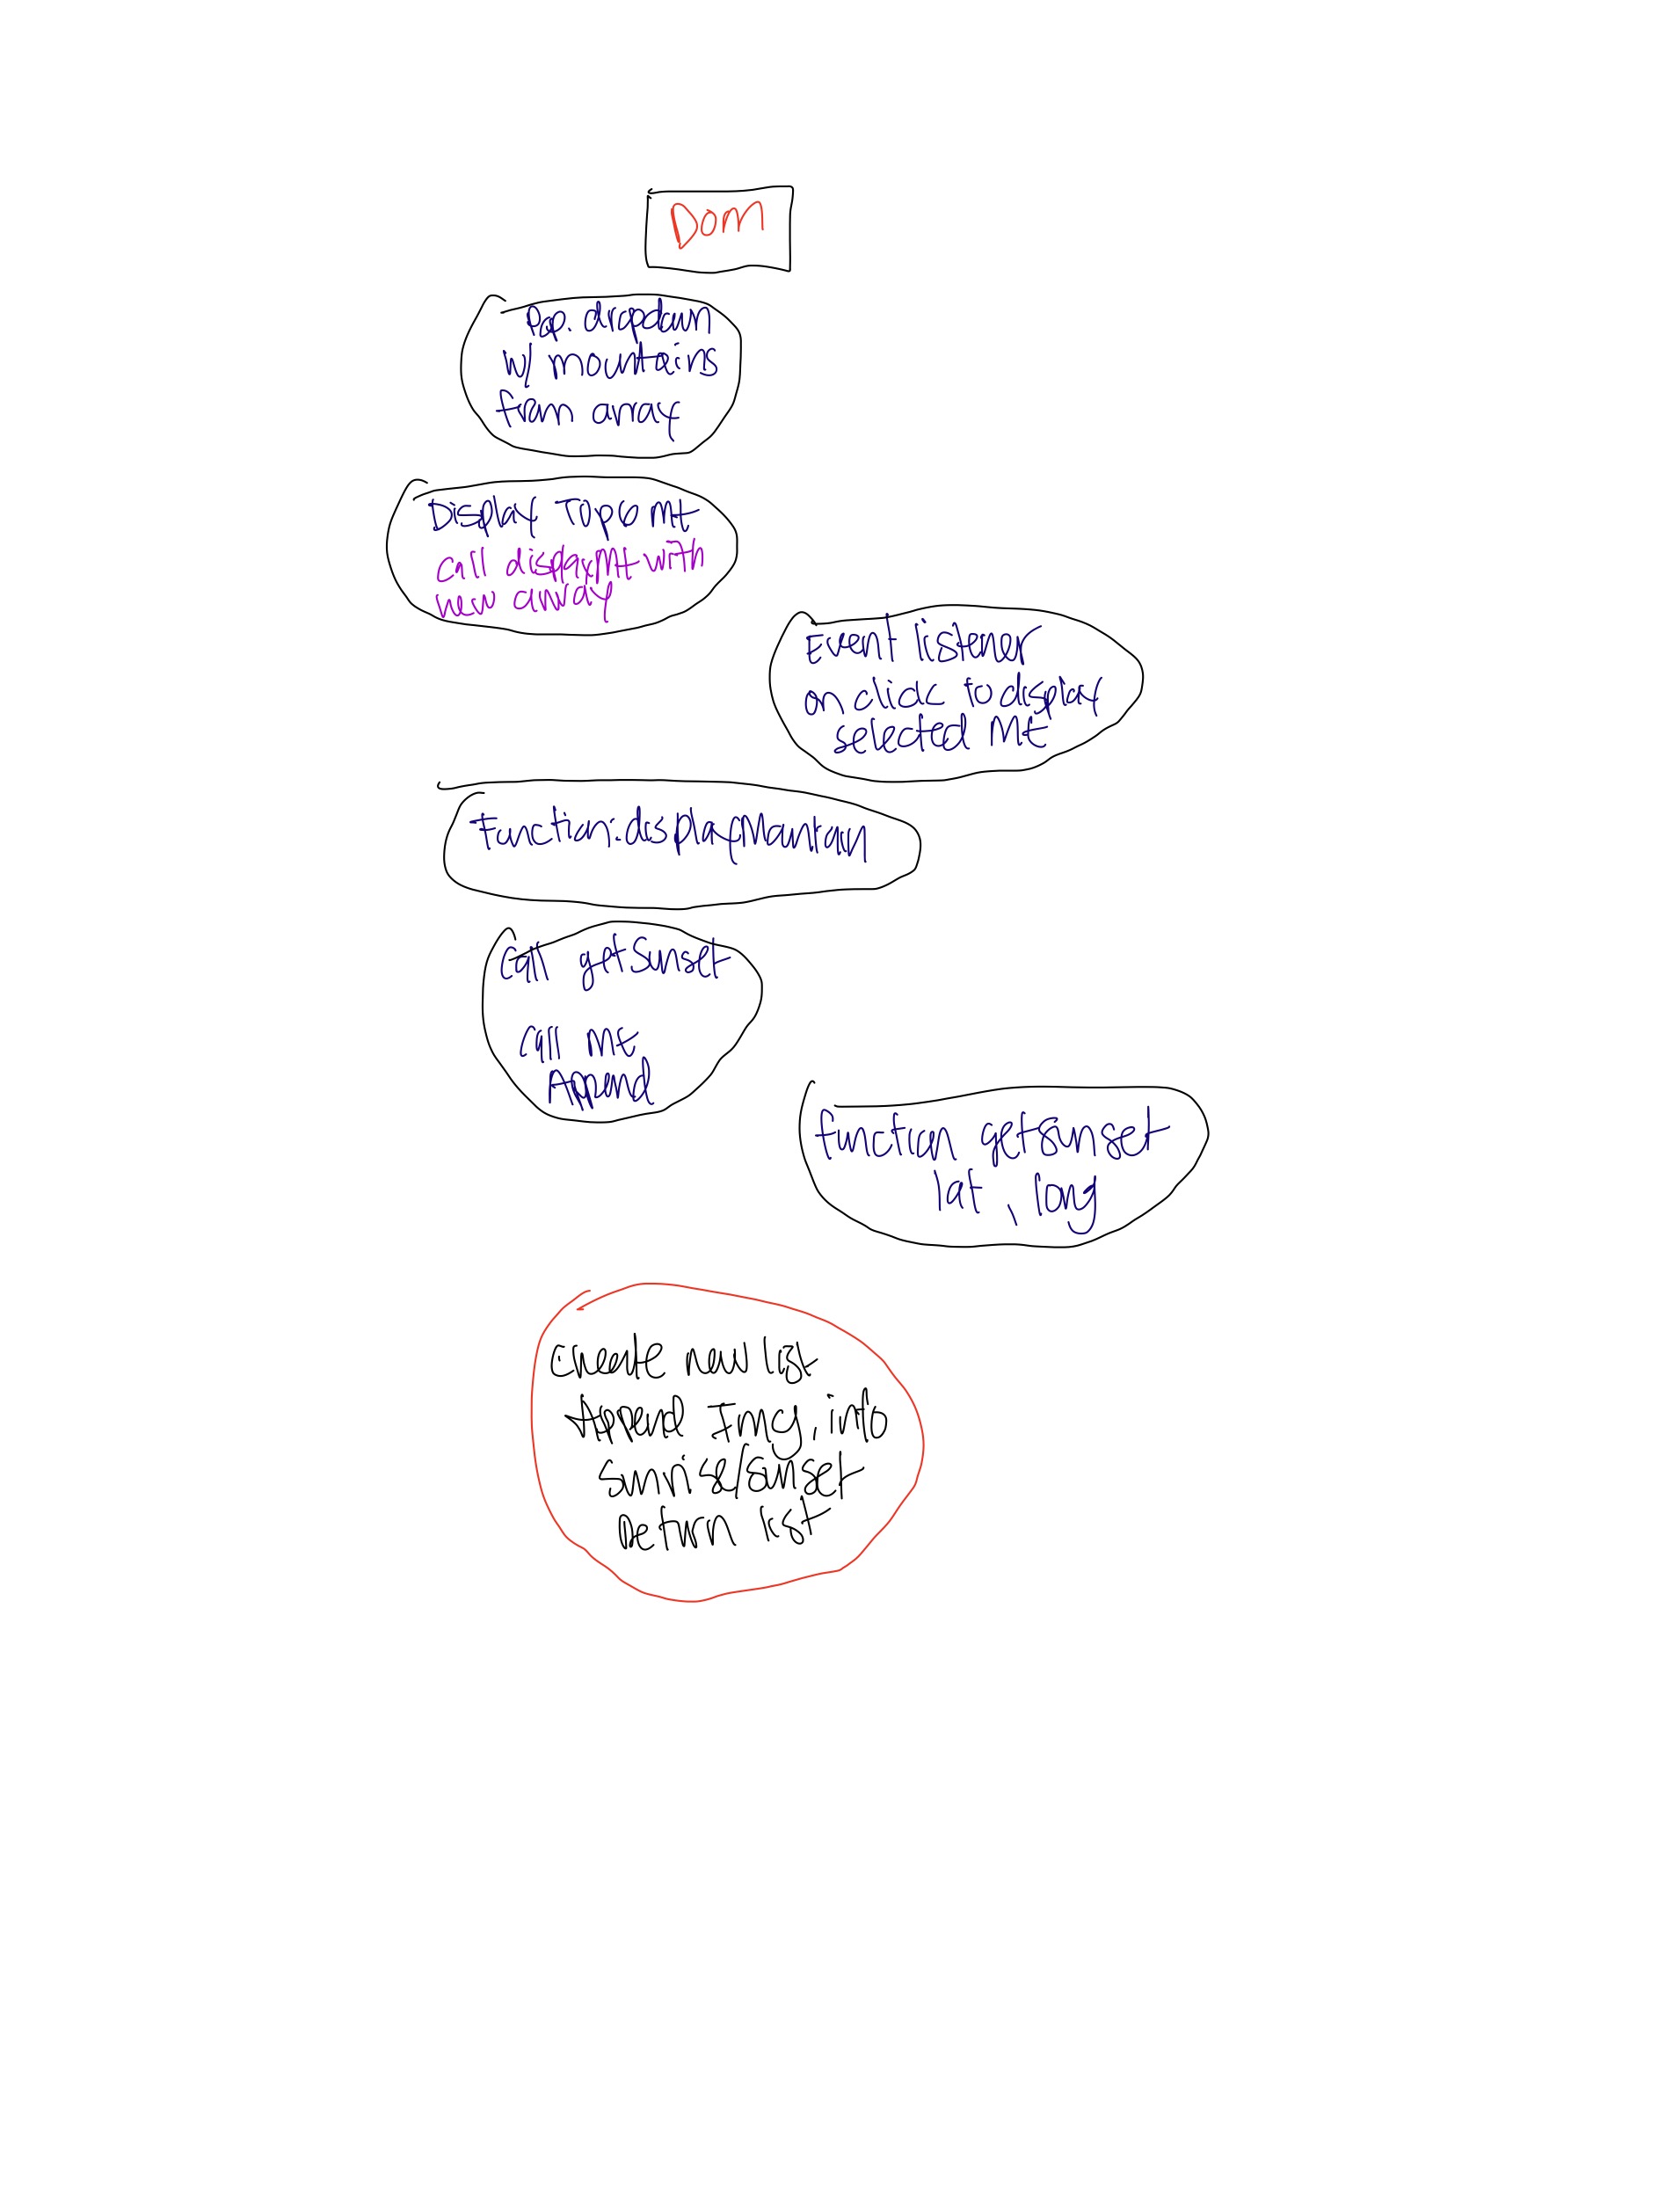 Dom
Pop. dropdown
w/ mountains
from array
Display Topo Mt
call displayMt with
new array
Event listener
on click to display
selected Mt
Function: displayMountain
Call getSunset
call Mt
Append
function getsunset
lat, long
create new list
Append Img, info
sunrise/sunset
Return list